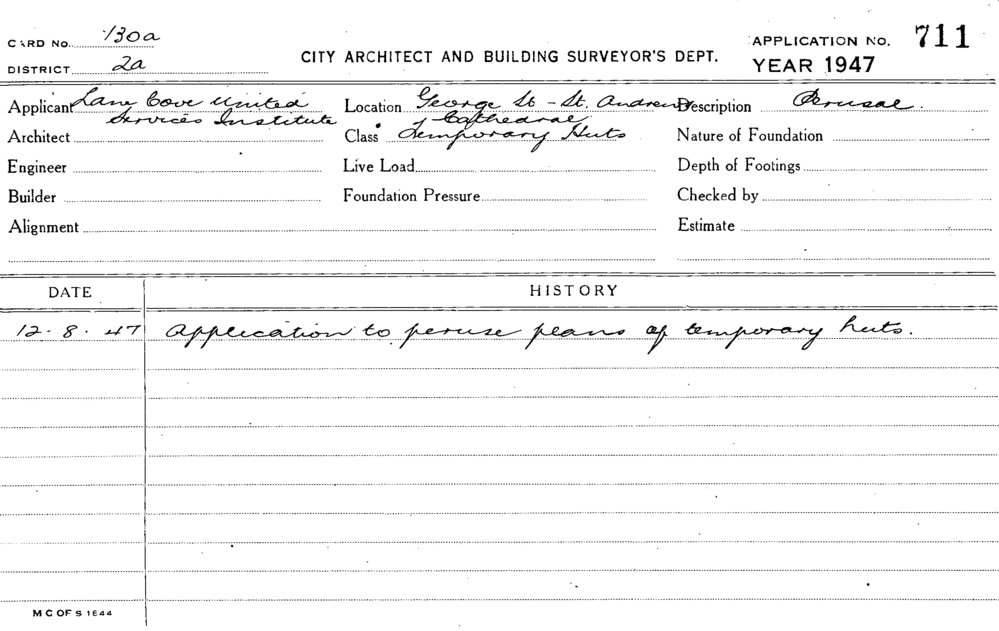 CARD No. 130a
CITY ARCHITECT AND BUILDING SURVEYOR'S DEPT.
APPLICATION No. 711
DISTRICT 2a
YEAR 1947
Applicant Lane Cove United Services Institute
Location George St - St. Andrews Cathedral
Description Perusal.
Architect
Class Temporary Huts
Nature of Foundation
Engineer
Live Load
Depth of Footings
Builder
Foundation Pressure
Checked by
Alignment
Estimate
DATE
HISTORY
12. 8. 47 Application to peruse plans of temporary huts.
M C OF S 1844